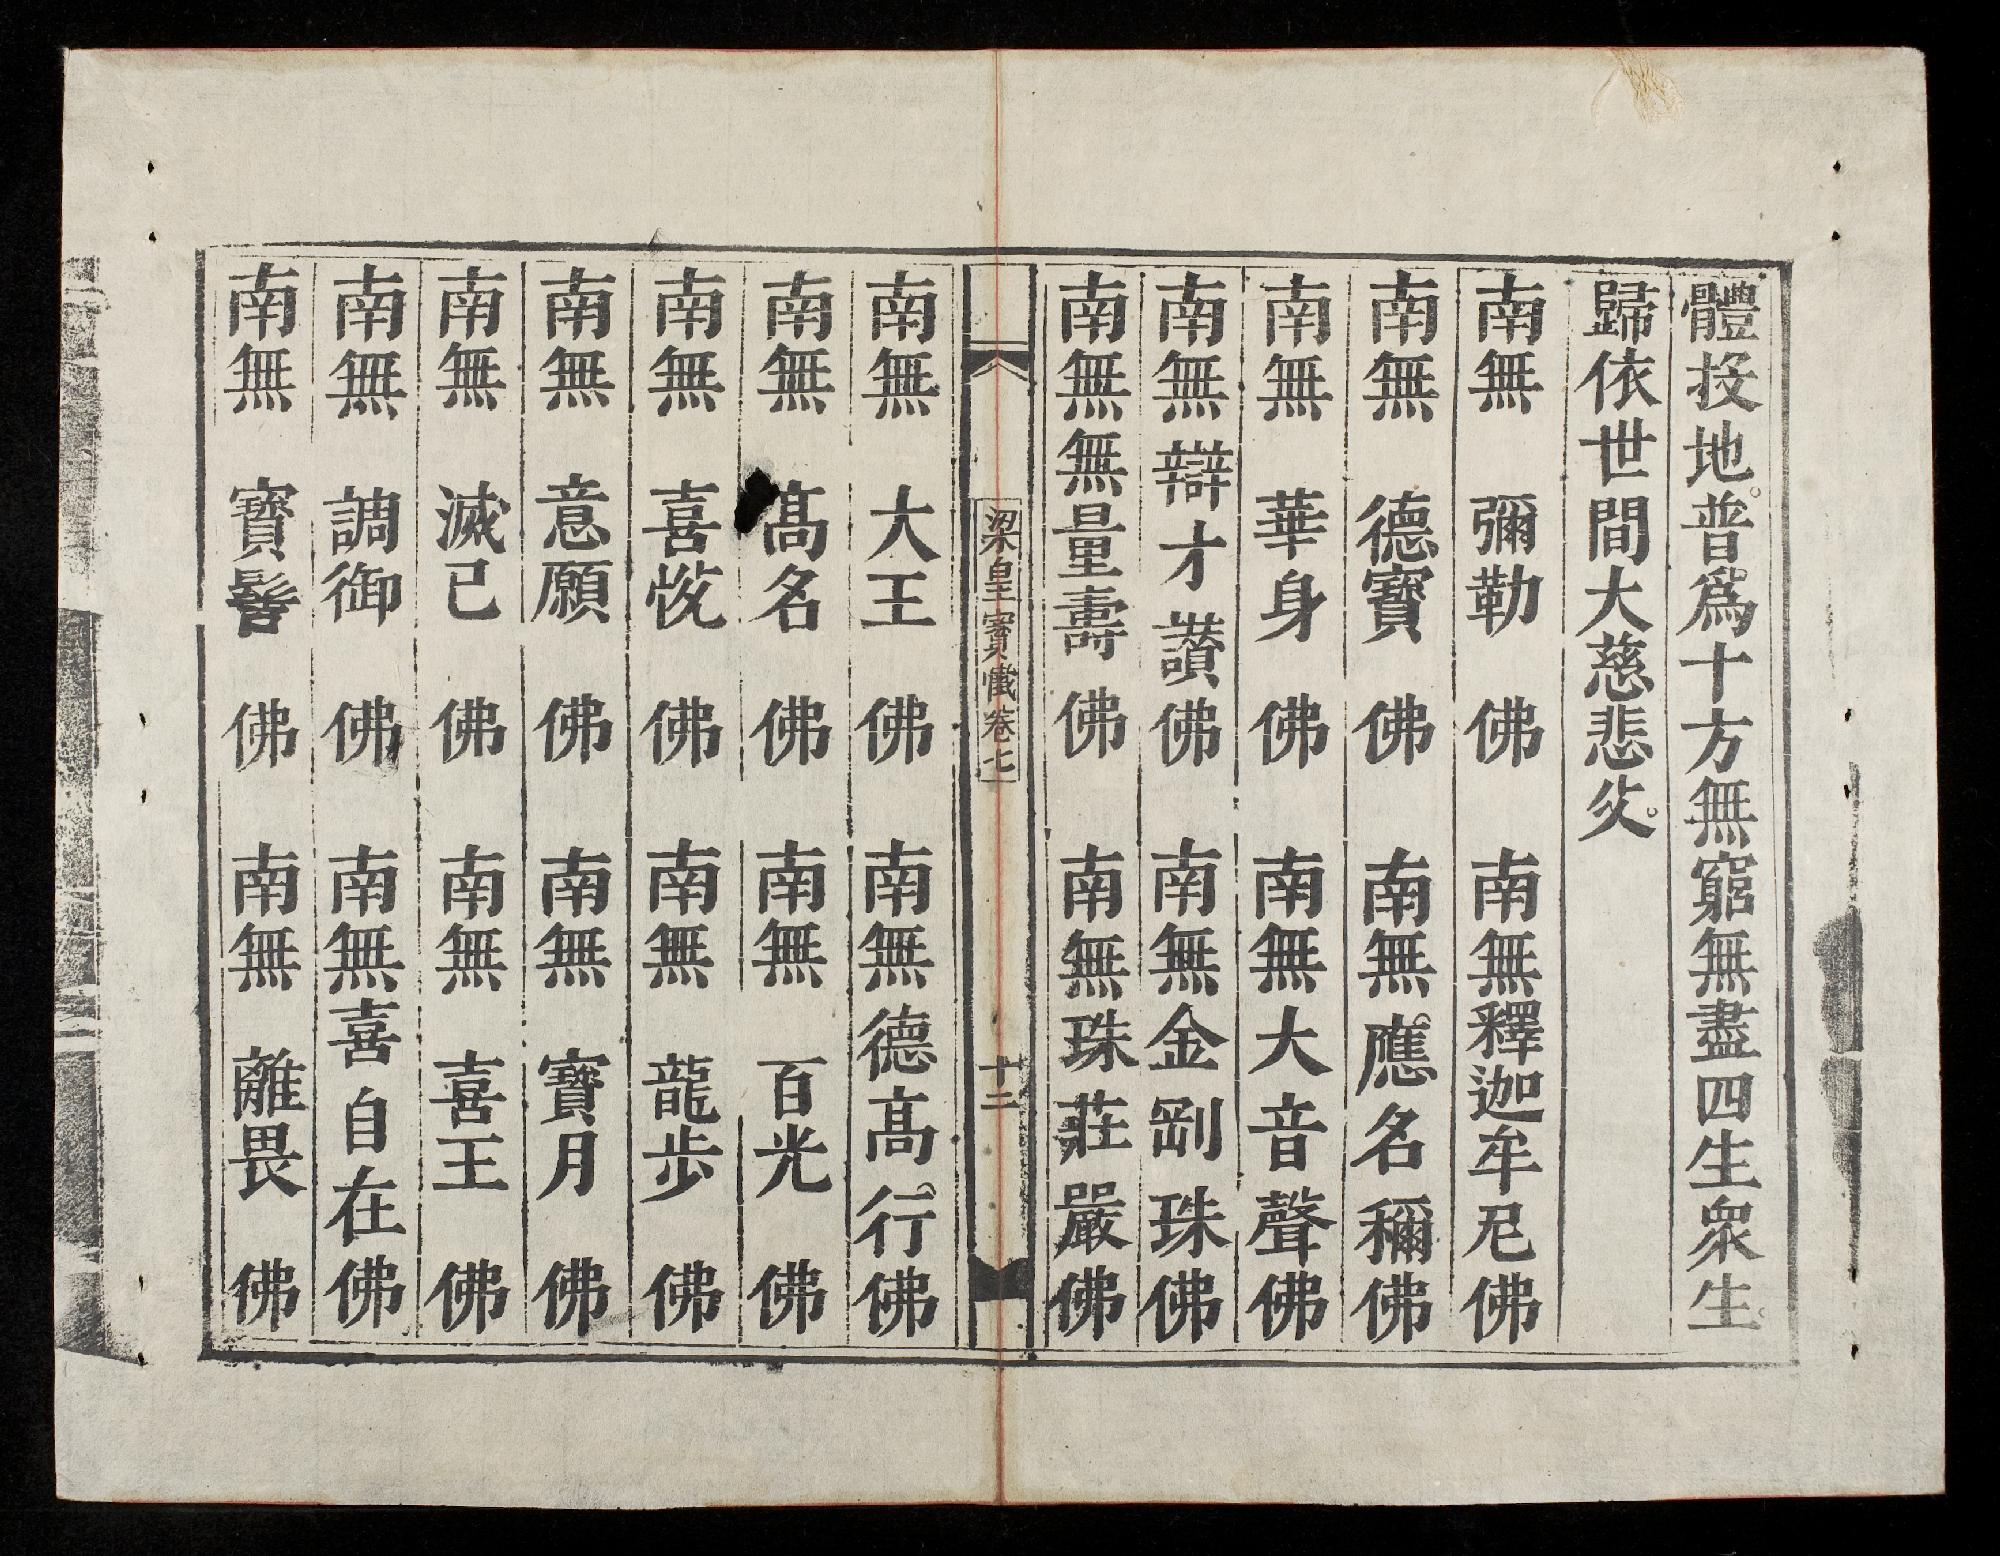 體投地。普爲十方無窮無盡四生衆生。
歸依世間大慈悲父。
南無彌勒佛　南無釋迦牟尼佛
南無德寶佛　南無應名稱佛
南無華身佛　南無大音聲佛
南無辯才讚佛　南無金剛珠佛
南無無量壽佛　南無珠莊嚴佛
梁皇寳懺卷七　十二
南無大王佛　南無德高行佛
南無高名佛　南無百光佛
南無喜悅佛　南無龍步佛
南無意願佛　南無寶月佛
南無滅已佛　南無喜王佛
南無調御佛　南無喜自在佛
南無寶髻佛　南無離畏佛